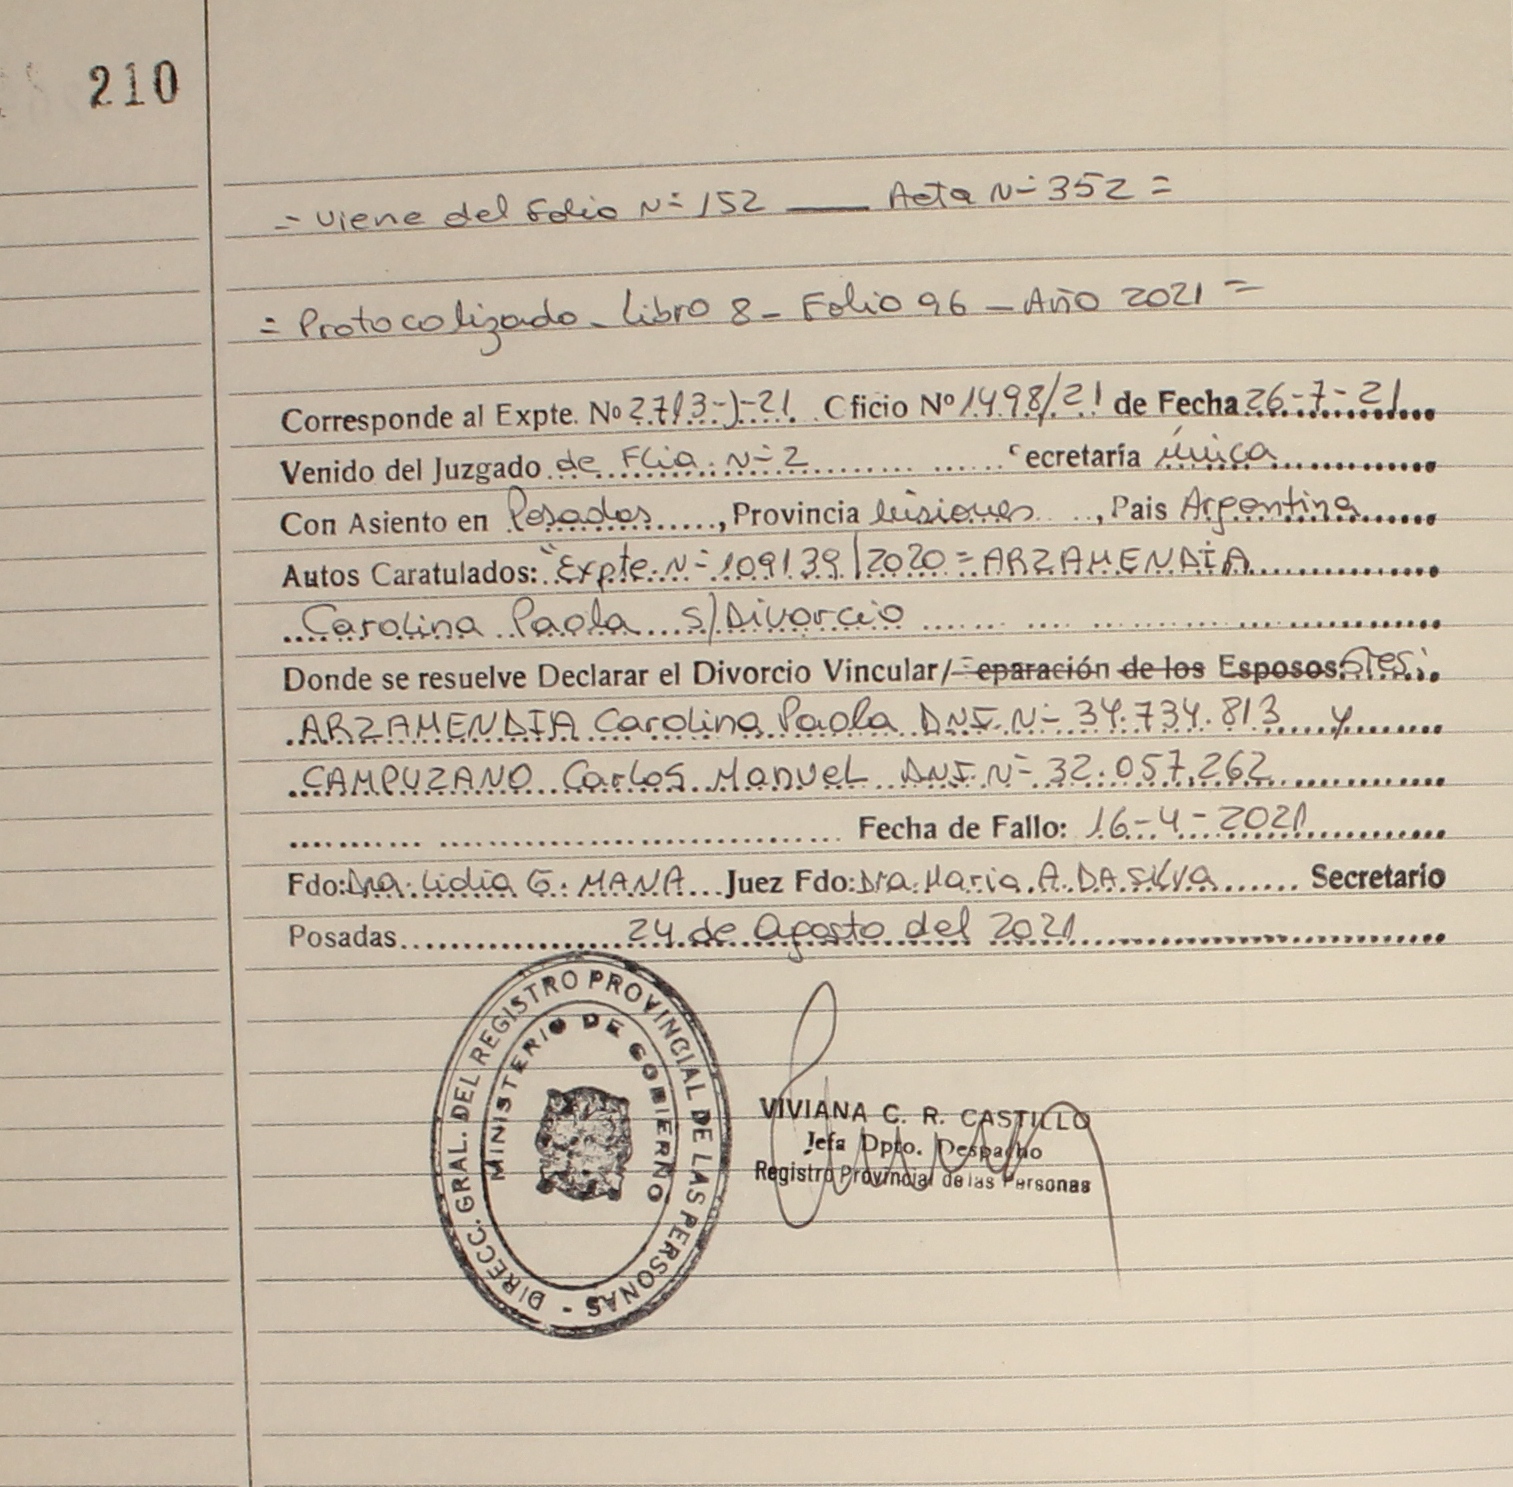 210
= Viene del Folio Nº 152 —— Acta Nº 352 =
= Protocolizado - Libro 8 - Folio 96 - Año 2021 =
Corresponde al Expte. Nº 2713-J-21 Oficio Nº 1498/21 de Fecha 26-7-21
Venido del Juzgado de Flia. Nº 2 Secretaría única
Con Asiento en Posadas, Provincia Misiones, Pais Argentina
Autos Caratulados: "Expte. Nº 109139/2020 = ARZAMENDIA
Carolina Paola s/Divorcio
Donde se resuelve Declarar el Divorcio Vincular/Separación de los Esposos: Stes:
ARZAMENDIA Carolina Paola DNI. Nº 34.734.813 y
CAMPUZANO Carlos Manuel DNI. Nº 32.057.262
Fecha de Fallo: 16-4-2021
Fdo: Dra. Lidia G. MANA Juez Fdo: Dra. Maria A. DA SILVA Secretario
Posadas 24 de Agosto del 2021
DIRECC. GRAL. DEL REGISTRO PROVINCIAL DE LAS PERSONAS -
MINISTERIO DE GOBIERNO
VIVIANA C. R. CASTILLO
Jefa Dpto. Despacho
Registro Provincial de las Personas